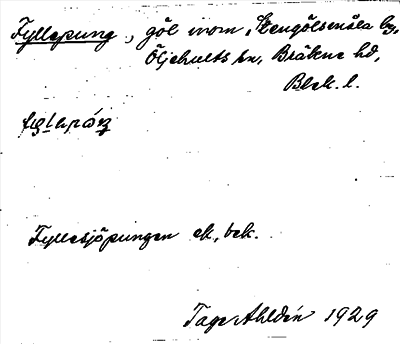 Fyllepung, göl inom Stengölsmåla by,
Öljehults sn, Bräkne hd,
Blek. l.
Fyllesjöpungen ek, bek.
Tage Ahldén 1929